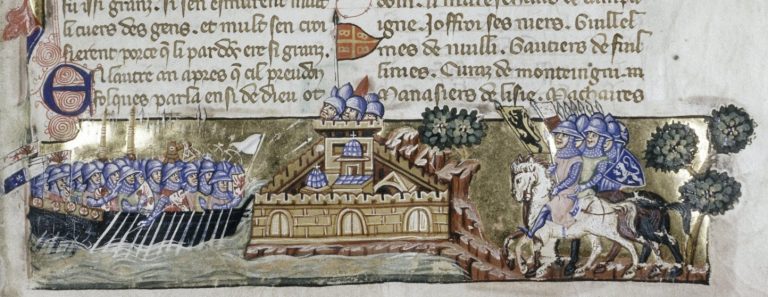 fu issi granz. si sen esmurent mult
li cuers des gens. et mult sen croi
sierent porce q̄ li pardōs ere si granz.
En lautre an apres q̄ cil preudon
folques parla ensi de dieu ot
mareschaus de champa
igne. Joffroi ses niers. Guillel
mes de nuilli. Gautiers de fuil
limes. Curaz de monteingni.
Manasiers de lisle. Machaires